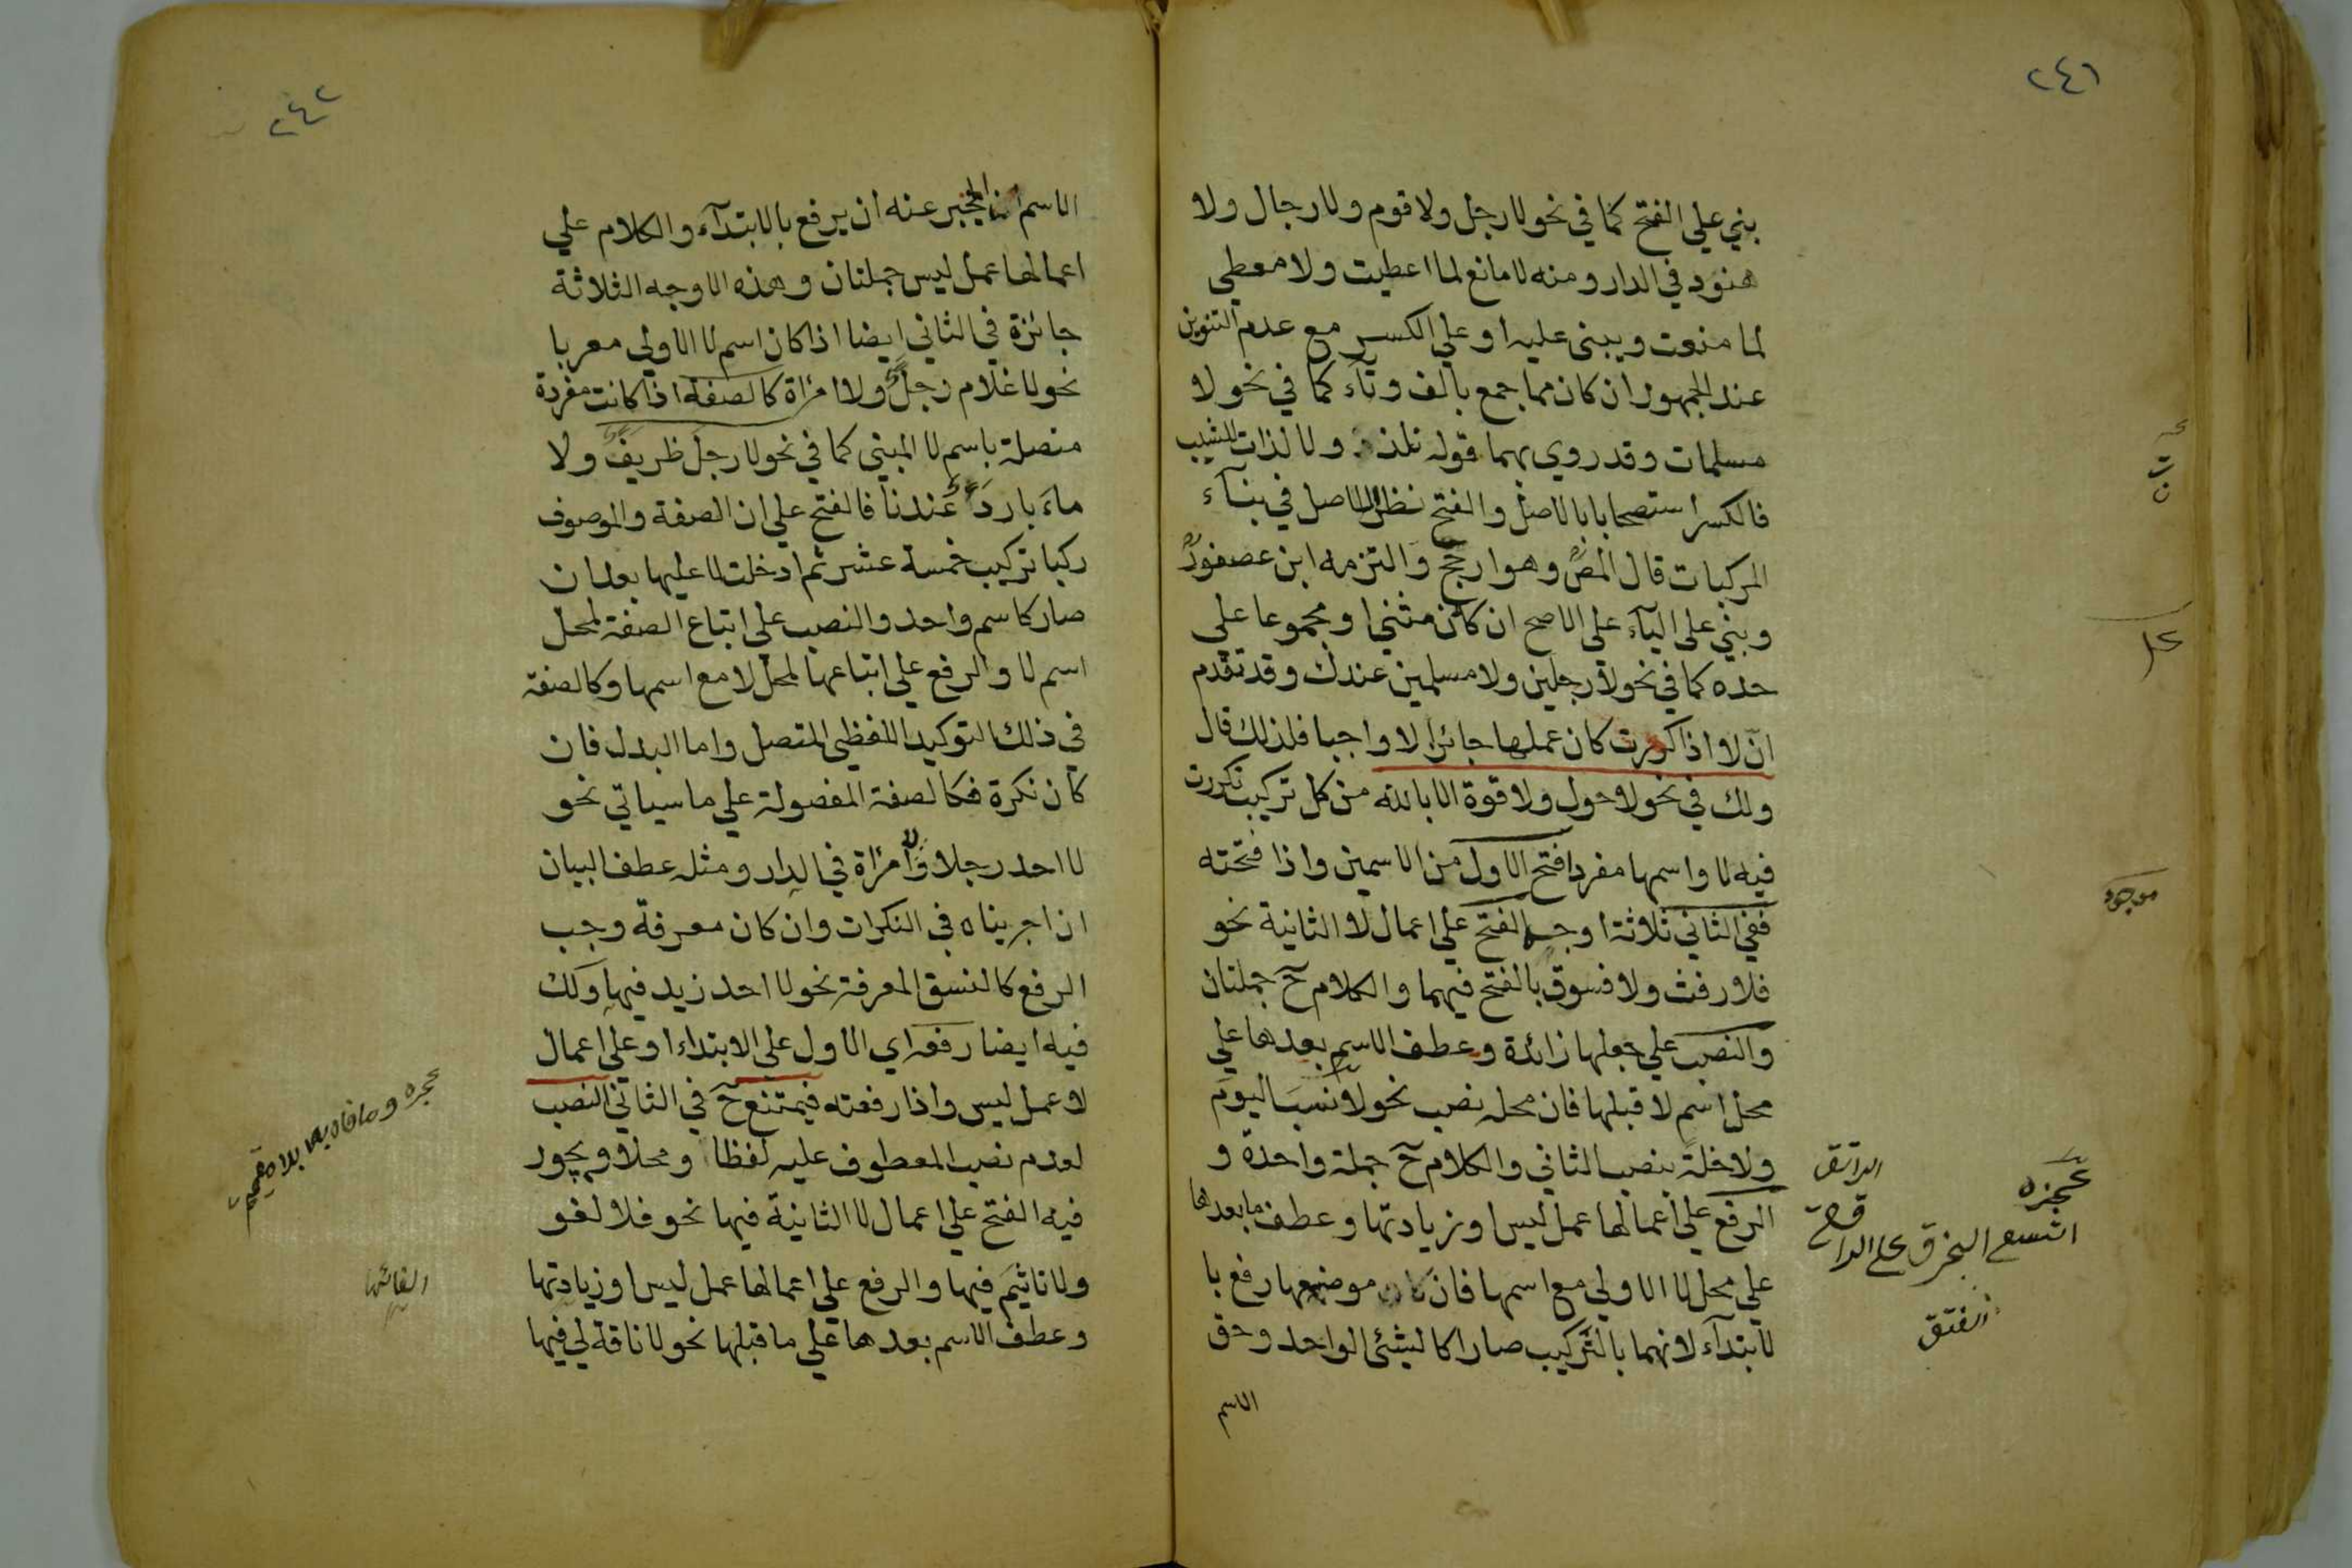 ٢٤١
بني علي الفتح كما في نحو لا رجل ولا قوم ولا رجال ولا
هنود في الدار ومنه لا مانع لما اعطيت ولا معطي
لما منعت ويبنى عليه او علي الكسر مع عدم التنوين
عند الجمهور ان كان مما جمع بالف وتآء كما في نحو لا
مسلمات وقد روي بهما قوله نلذ ولا لذات للشيب
فالكسر استصحابا بالاصل والفتح نظرا للاصل في بنآء
المركبات قال المص وهو ارجح والتزمه ابن عصفور
وبني علي اليآء علي الاصح ان كان مثني او مجموعا علي
حده كما في نحو لا رجلين ولا مسلمين عندك وقد تقدم
انّ لا اذا كررت كان عملها جائزا لا واجبا فلذلك قال
ولك في نحو لا حول ولا قوة الا بالله من كل تركيب تكررت
فيه لا واسمها مفرد فتح الاول من الاسمين واذا فتحته
ففي الثاني ثلاثة اوجه الفتح علي اعمال لا الثانية نحو
فلا رفث ولا فسوق بالفتح فيهما والكلام ح جملتان
والنصب علي جعلها زائدة وعطف الاسم بعدها علي
محل اسم لا قبلها فان محله نصب نحو لا نسب اليوم
ولا خلة بنصب الثاني والكلام ح جملة واحدة و
الرفع علي اعمالها عمل ليس او زيادتها وعطف ما بعدها
علي محل لا الاولي مع اسمها فان موضعها رفع با
لابتدآء لانهما بالتركيب صارا كالشئ الواحد وحق
الاسم
موجود
عجزه
اتسع الخرق على الراقع
الراتق
الفتق
٢٤٢
الاسم المخبر عنه ان يرفع بالابتدآء والكلام علي
اعمالها عمل ليس جملتان وهذه الاوجه الثلاثة
جائزة في الثاني ايضا اذا كان اسم لا الاولي معربا
نحو لا غلام رجل ولا امراة كالصفة اذا كانت مفردة
متصلة باسم لا المبني كما في نحو لا رجل ظريف ولا
ماء بارد عندنا فالفتح علي ان الصفة والموصوف
ركبا تركيب خمسة عشر ثم ادخلت لا عليها بعد ان
صار كاسم واحد والنصب علي اتباع الصفة لمحل
اسم لا والرفع علي اتباعها لمحل لا مع اسمها وكالصفة
في ذلك التوكيد اللفظي المتصل واما البدل فان
كان نكرة فكالصفة المفصولة علي ما سياتي نحو
لا احد رجلا وامراة في الدار ومثله عطف البيان
ان اجريناه في النكرات وان كان معرفة وجب
الرفع كالنسق المعرفة نحو لا احد زيد فيها ولك
فيه ايضا رفعه اي الاول علي الابتداء او علي اعمال
لا عمل ليس واذا رفعته فيمتنع ح في الثاني النصب
لعدم نصب المعطوف عليه لفظا ومحلا ويجوز
فيه الفتح علي اعمال لا الثانية فيها نحو فلا لغو
ولا تاثيم فيها والرفع علي اعمالها عمل ليس او زيادتها
وعطف الاسم بعدها علي ما قبلها نحو لا ناقة لي فيها
عجزه وما فاهوا به ابدا مقيم
الغائها